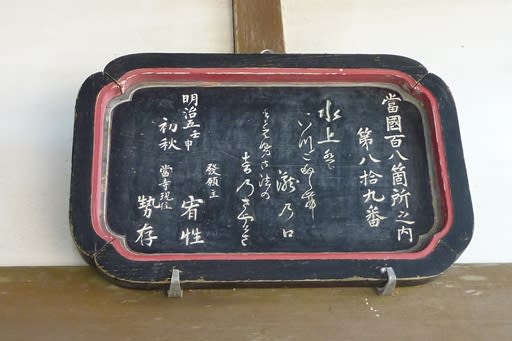 當國百八箇所之内
第八拾九番
水上
瀧乃口
法の
音乃
發願主
宥性
明治五壬申
初秋
當寺現住
勢存